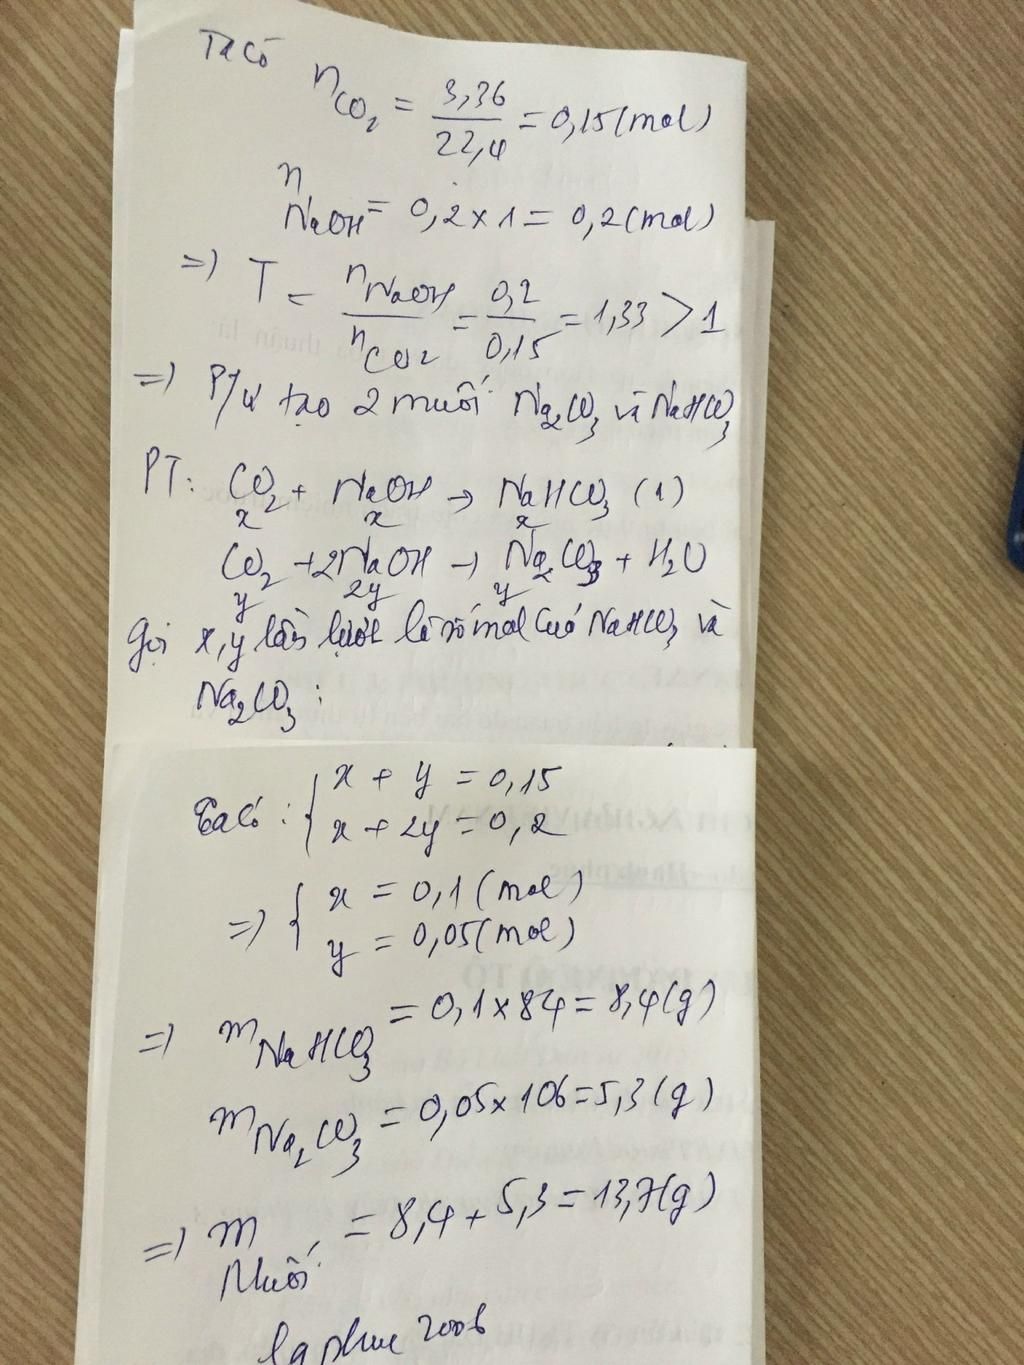 Ta có nCO2 = 3,36/22,4 = 0,15 (mol)
nNaOH = 0,2 x 1 = 0,2 (mol)
=> T = nNaOH/nCO2 = 0,2/0,15 = 1,33 > 1
=> P/ư tạo 2 muối Na2CO3 và NaHCO3
PT: CO2 + NaOH → NaHCO3 (1)
x x x
CO2 + 2NaOH → Na2CO3 + H2O
y 2y y
Gọi x, y lần lượt là số mol của NaHCO3 và
Na2CO3:
Ta có: { x + y = 0,15
x + 2y = 0,2
=> { x = 0,1 (mol)
y = 0,05 (mol)
=> mNaHCO3 = 0,1 x 84 = 8,4 (g)
mNa2CO3 = 0,05 x 106 = 5,3 (g)
=> m Muối = 8,4 + 5,3 = 13,7 (g)